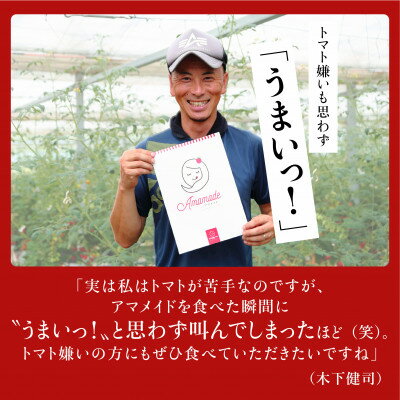 トマト嫌いも思わず
「うまいっ！」
Amamade
「実は私はトマトが苦手なのですが、
アマメイドを食べた瞬間に
〝うまいっ！〟と思わず叫んでしまったほど（笑）。
トマト嫌いの方にもぜひ食べていただきたいですね」
（木下健司）